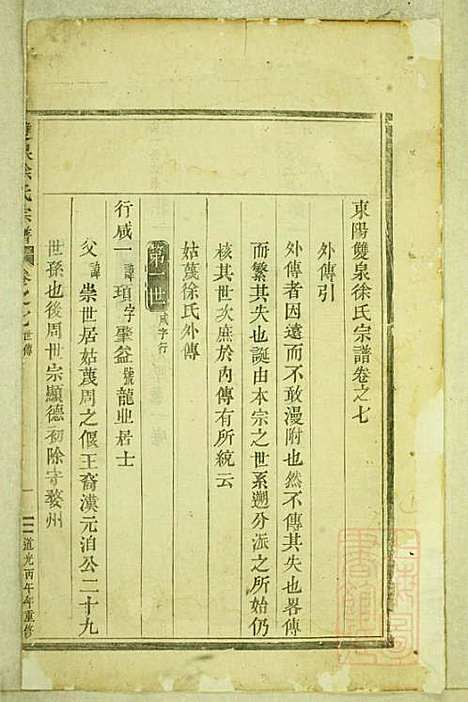 東陽雙泉徐氏宗譜卷之七
外傳引
外傳者因遠而不敢漫附也然不傳其失也畧傳
而繁其失也誕由本宗之世系遡分派之所始仍
核其世次庶於內傳有所統云
姑蔑徐氏外傳
第一世 咸字行
行咸一諱瑣字肇益號龍业居士
父諱崇世居姑蔑周之偃王裔漢元洎公二十九
世孫也後周世宗顯德初除守婺州
雙泉徐氏宗譜 卷之七 世傳 一 道光丙午年重修